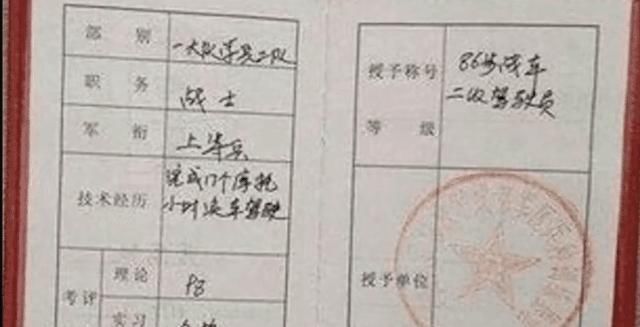 部别 一大队学员二队
职务 战士
军衔 上等兵
技术经历 完成17个摩托
小时实车驾驶
考评 理论 98
实习
授予称号 86步战车
等级 二级驾驶员
授予单位